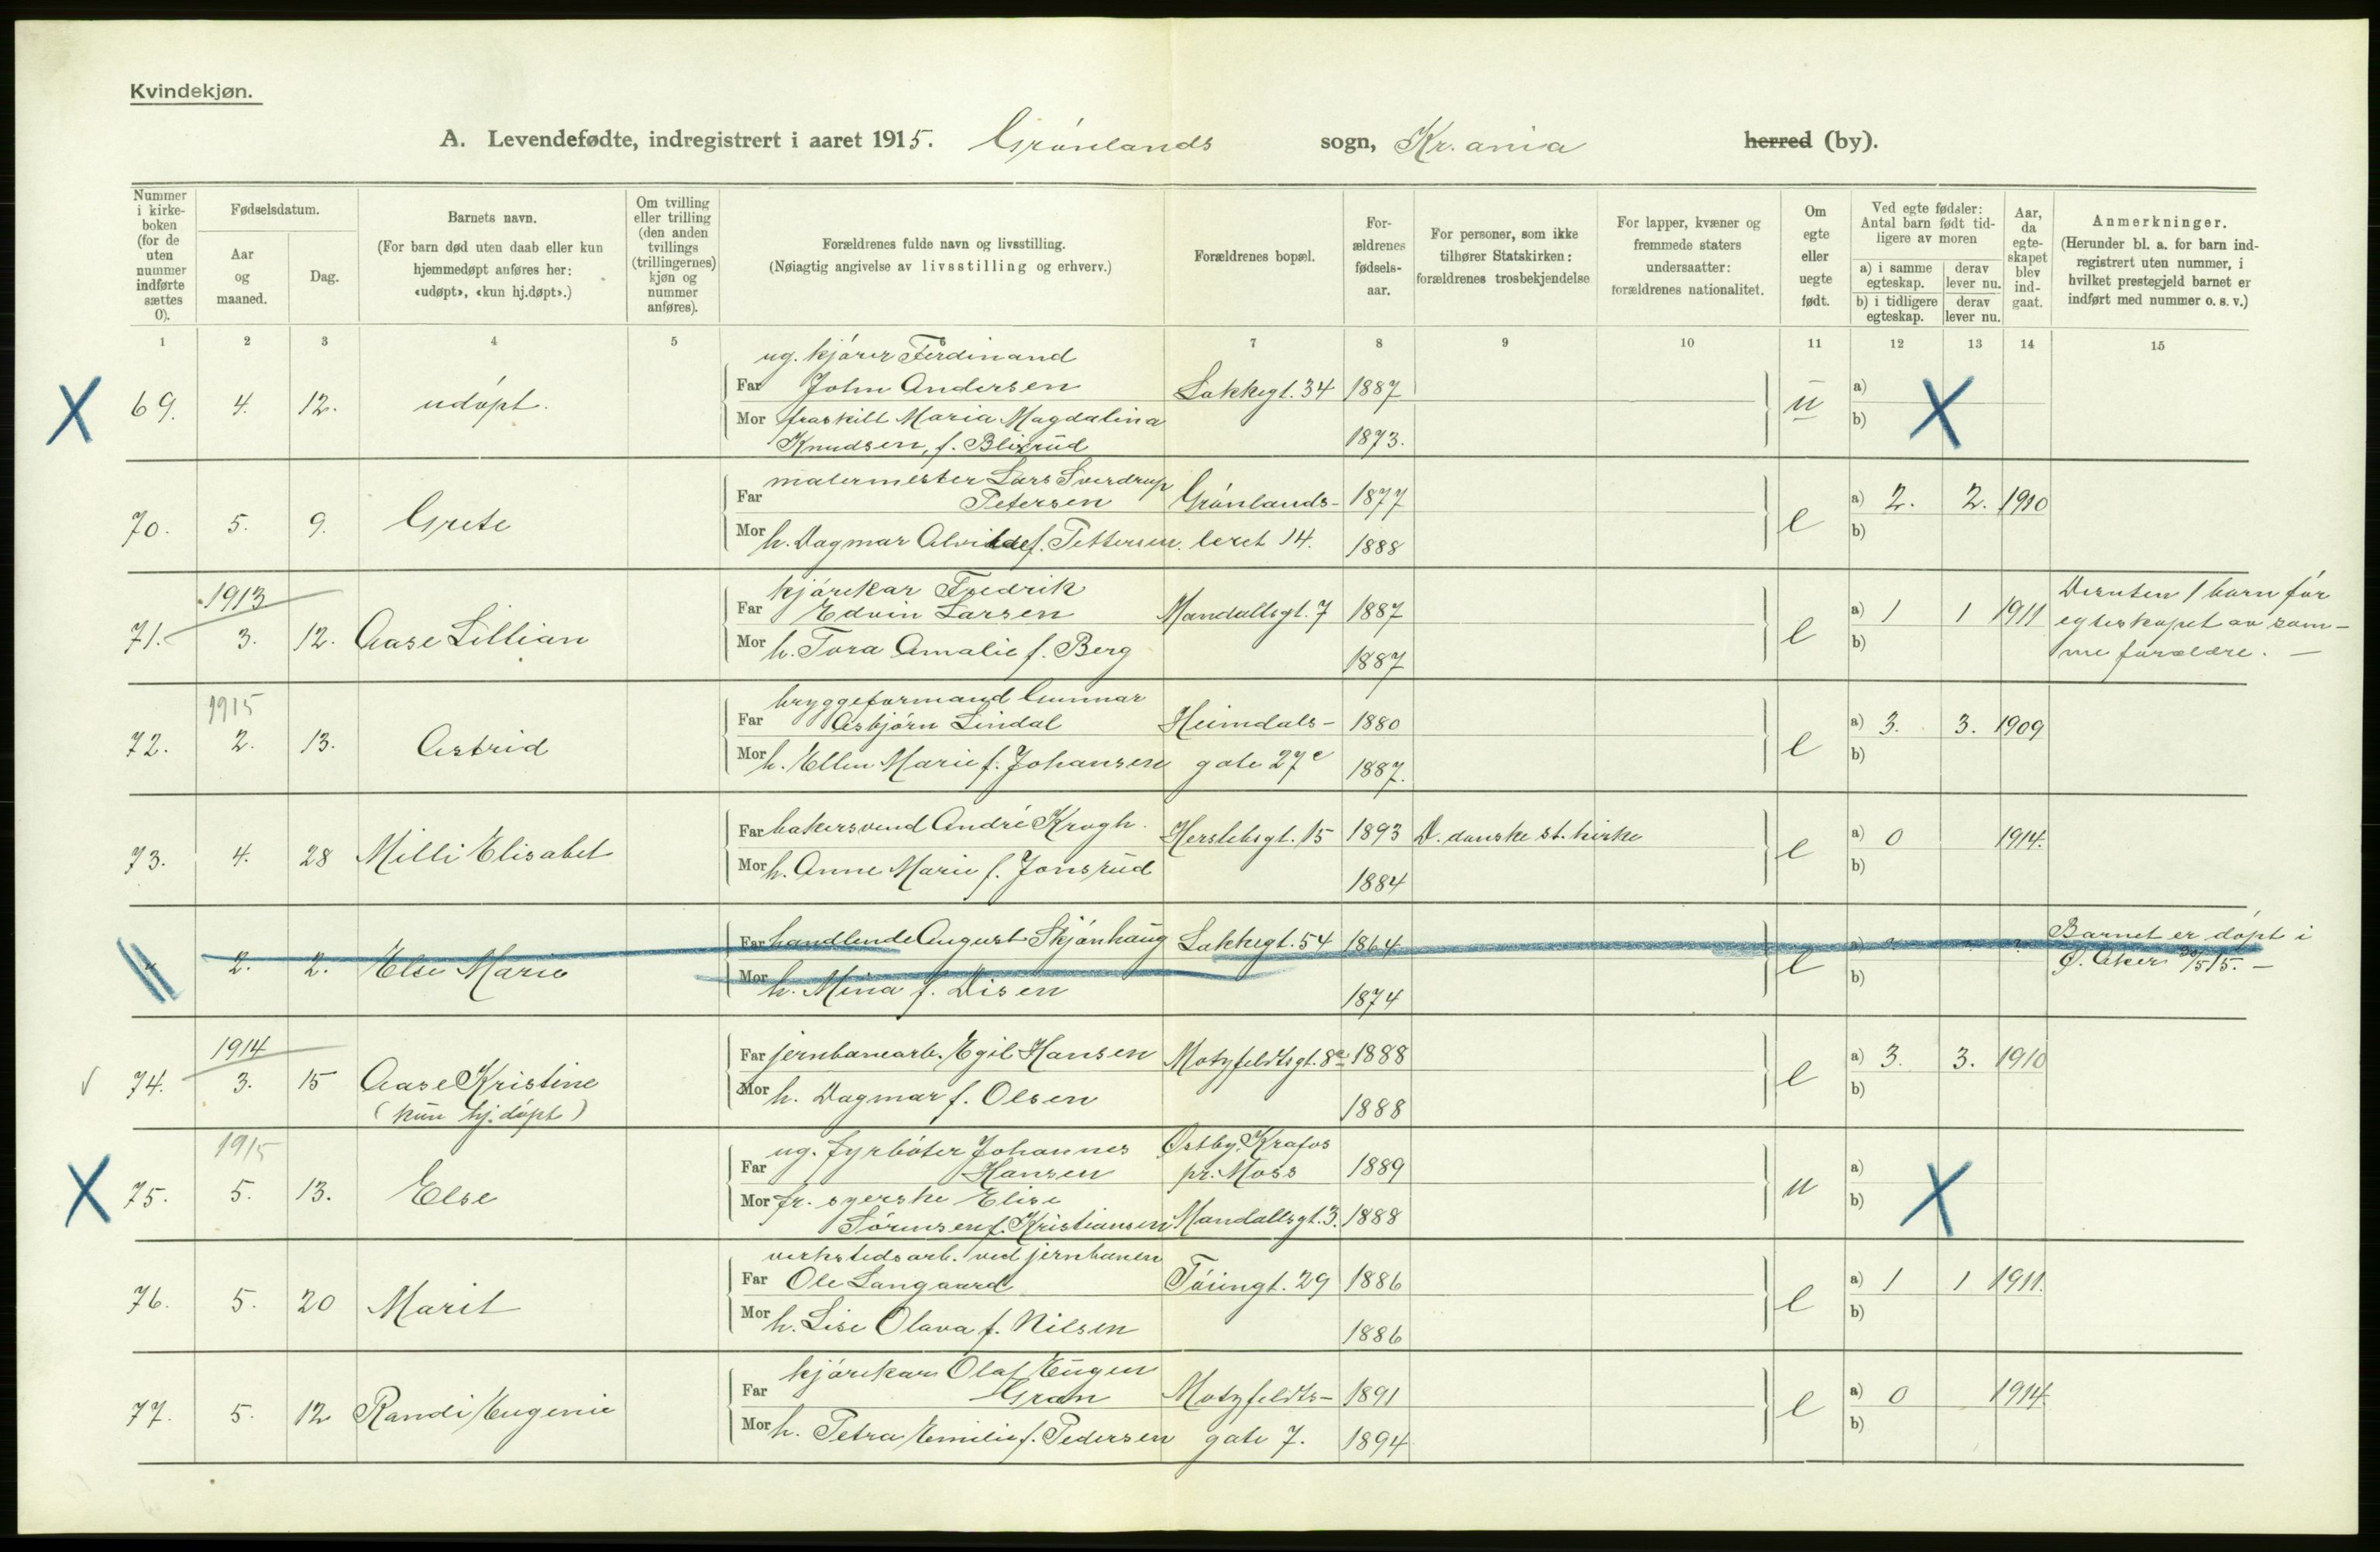 Kvindekjøn.
A. Levendefødte, indregistrert i aaret 1915. Grønlands sogn, Kr.ania herred (by).
Nummer i kirkeboken (for de uten nummer indførte sættes 0).
Fødselsdatum.
Aar og maaned.
Dag.
Barnets navn.
(For barn død uten daab eller kun hjemmedøpt anføres her: «udøpt», «kun hj.døpt».)
Om tvilling eller trilling (den anden tvillings (trillingernes) kjøn og nummer anføres).
Forældrenes fulde navn og livsstilling.
(Nøiagtig angivelse av livsstilling og erhverv.)
Forældrenes bopæl.
Forældrenes fødselsaar.
For personer, som ikke tilhører Statskirken: forældrenes trosbekjendelse
For lapper, kvæner og fremmede staters undersaatter: forældrenes nationalitet.
Om egte eller uegte født.
Ved egte fødsler: Antal barn født tidligere av moren
a) i samme egteskap. derav lever nu.
b) i tidligere egteskap. derav lever nu.
Aar, da egteskapet blev indgaat.
Anmerkninger.
(Herunder bl. a. for barn indregistrert uten nummer, i hvilket prestegjeld barnet er indført med nummer o. s. v.)
1 2 3 4 5 7 8 9 10 11 12 13 14 15
ug. kjører Ferdinand
69. 4. 12. udøpt. Far John Andersen Lakkegt. 34 1887 u a)
Mor fraskilt Maria Magdalina b)
Knudsen, f. Blixrud 1873.
malermester Lars Sverdrup
70. 5. 9. Grete Far Petersen Grønlands- 1877 e a) 2. 2. 1910
Mor h. Dagmar Alvilde f. Pettersen. leret 14. 1888 b)
1913 kjørekar Fredrik Desuten 1 barn før
71. 3. 12. Aase Lillian Far Edvin Larsen Mandallsgt. 7 1887 e a) 1 1 1911 egteskapet av sam-
Mor h. Tora Amalie f. Berg 1887 b) me forældre. —
1915 bryggeformand Gunnar
72. 2. 13. Astrid Far Asbjørn Lindal Heimdals- 1880 e a) 3. 3. 1909
Mor h. Ellen Marie f. Johansen gate 27c 1887. b)
73. 4. 28 Milli Elisabet Far bakersvend André Krogh. Herslebsgt. 15 1893 D. danske st. kirke e a) 0 1914.
Mor h. Anne Marie f. Jonsrud 1884 b)
" 2. 2. Else Marie Far handlende August Skjønhaug Lakkegt. 54 1864 e a) Barnet er døpt i
Mor h. Mina f. Disen 1874 b) Ø. Aker 30/5 15. —
1914
74. 3. 15 Aase Kristine Far jernbanearb. Egil Hansen Motzfeldtsgt. 8a 1888 e a) 3. 3. 1910
(kun hj. døpt) Mor h. Dagmar f. Olsen 1888 b)
1915 ug. fyrbøter Johannes Østby, Krafos
75. 5. 13. Else Far Hansen pr. Moss 1889 u a)
Mor fr. syerske Elise b)
Sørensen f. Kristiansen Mandallsgt. 3. 1888
verkstedsarb. ved jernbanen
76. 5. 20 Marit Far Ole Langaard Tøiengt. 29 1886 e a) 1 1 1911.
Mor h. Lise Olava f. Nilsen 1886 b)
kjørekar Olaf Eugen
77. 5. 12 Randi Eugenie Far Gran Motzfeldts- 1891 e a) 0 1914.
Mor h. Petra Emilie f. Pedersen gate 7. 1894 b)